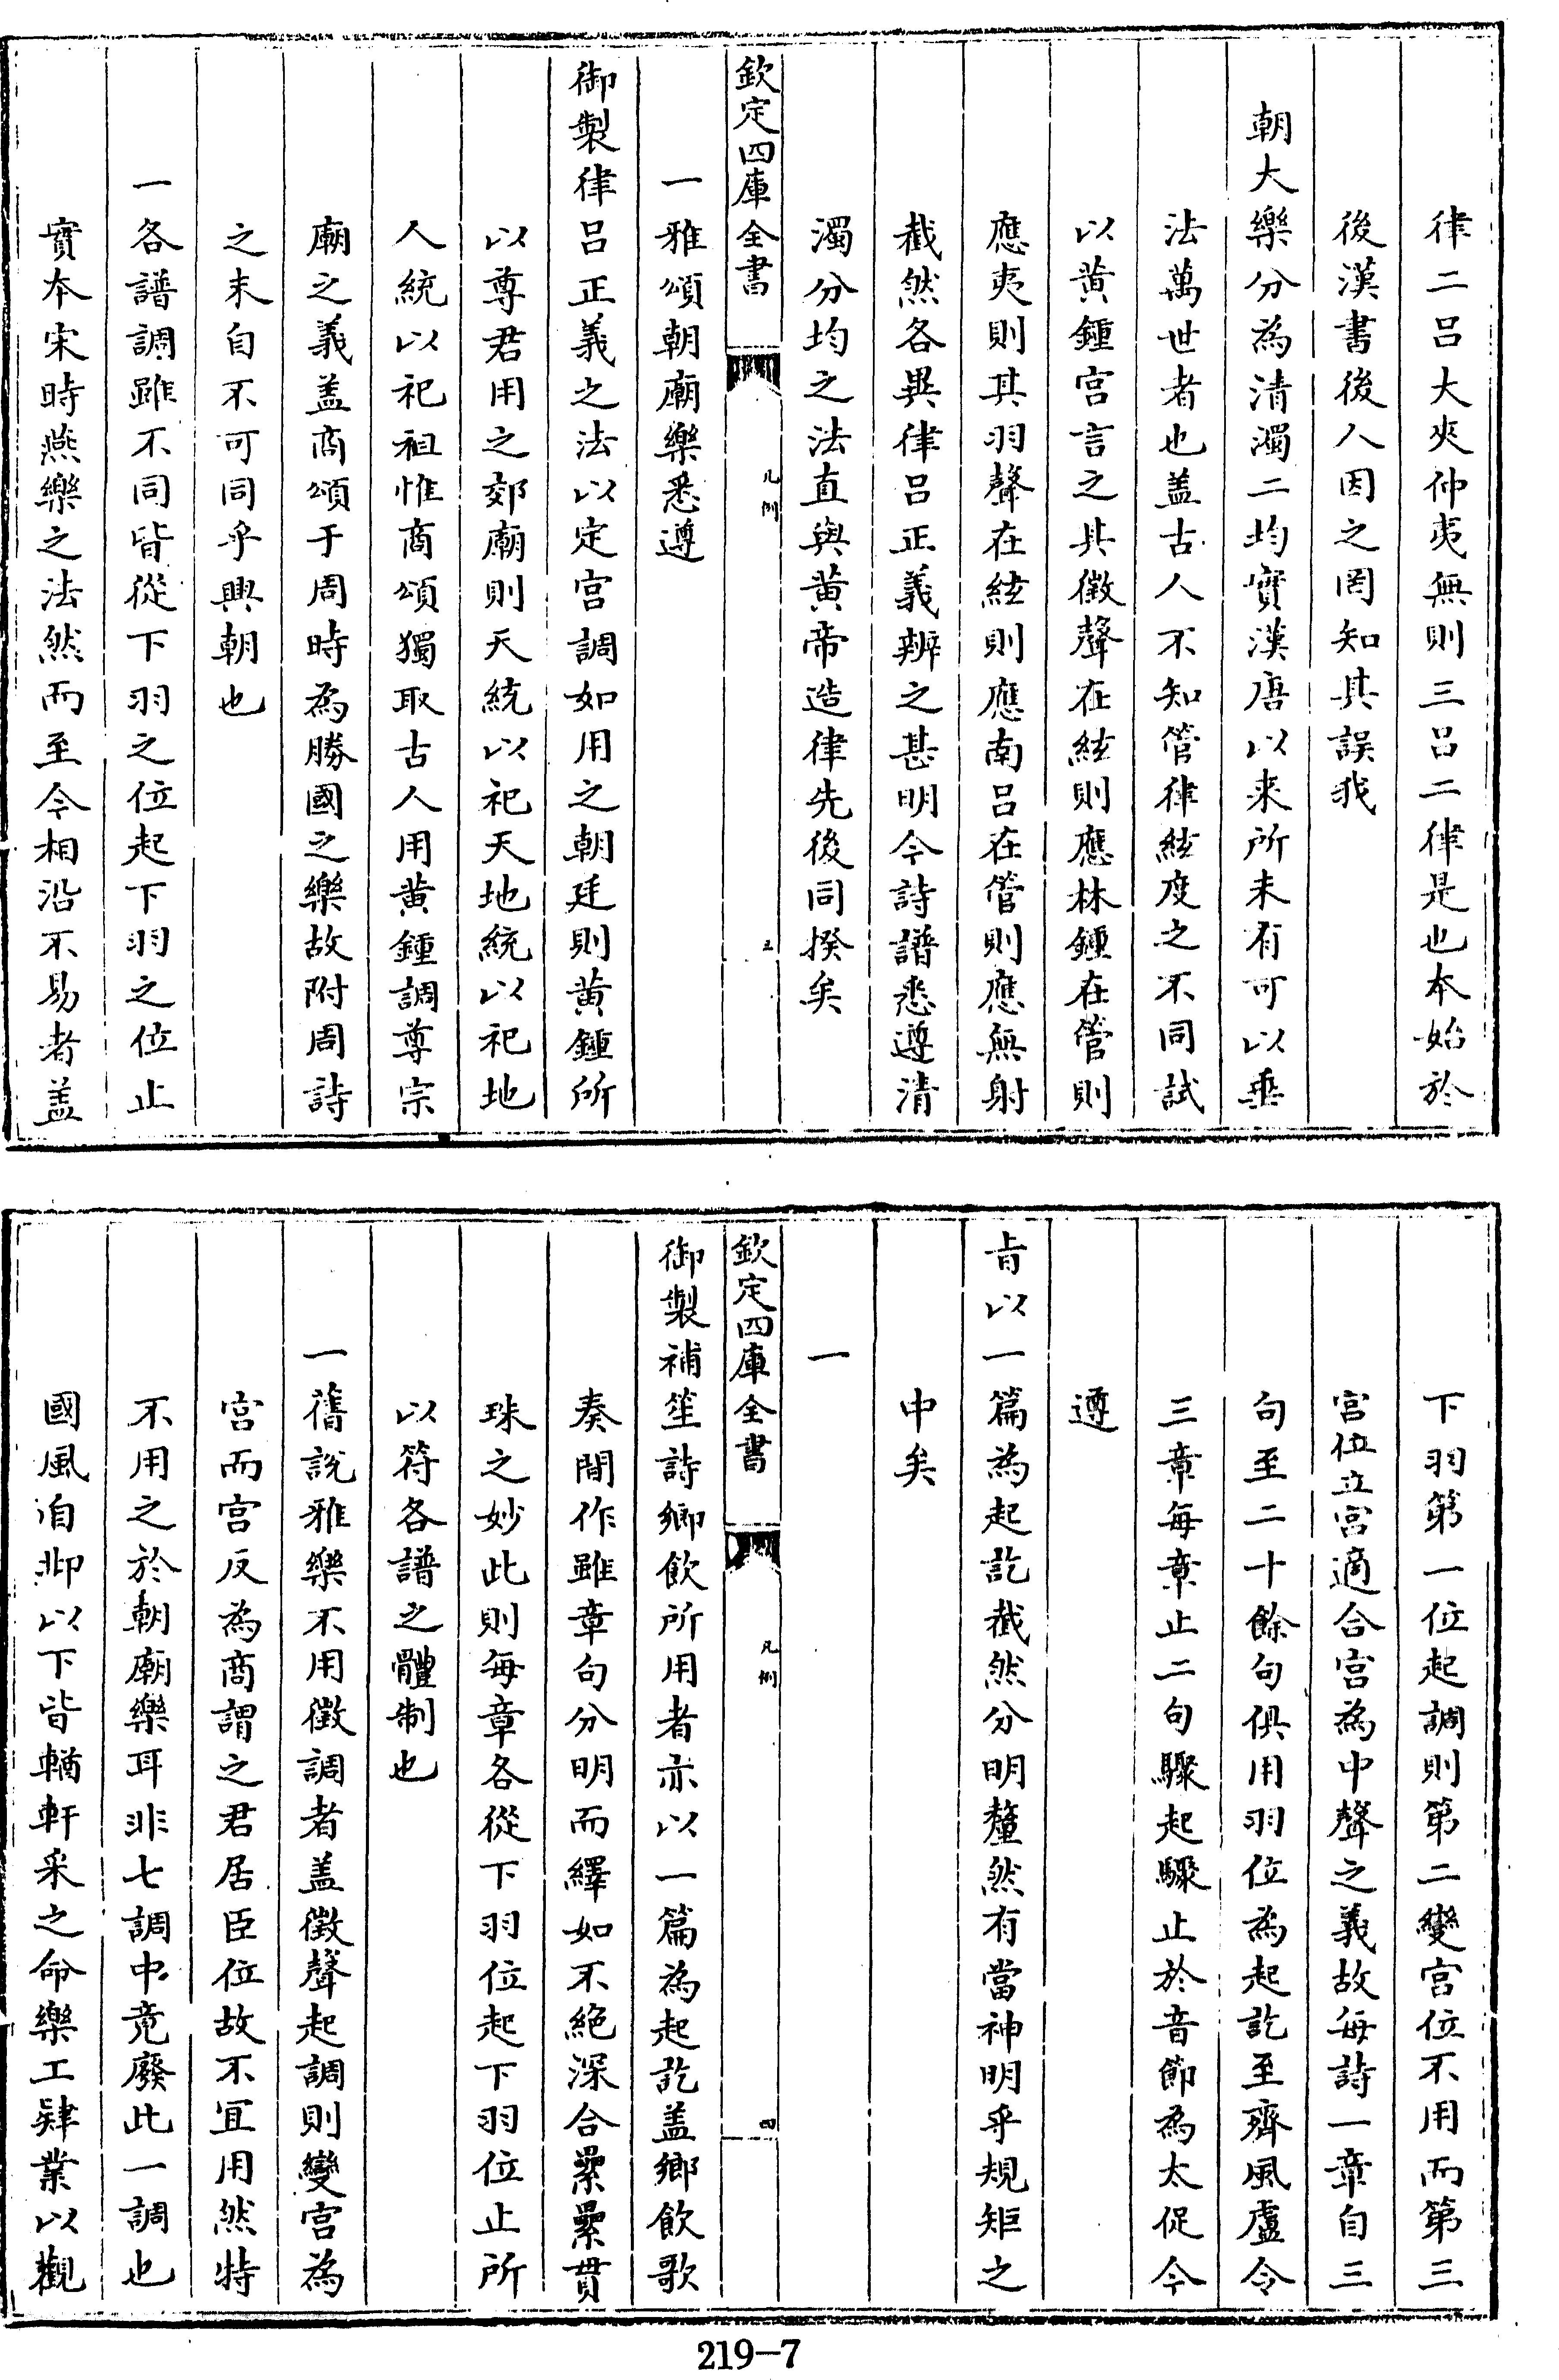 律二吕大夾仲夷無則三吕二律是也本始於
後漢書後人因之罔知其誤我
朝大樂分為清濁二均實漢唐以来所未有可以垂
法萬世者也盖古人不知管律絃度之不同試
以黄鍾宫言之其徵聲在絃則應林鍾在管則
應夷則其羽聲在絃則應南吕在管則應無射
截然各異律吕正義辨之甚明今詩譜悉遵清
濁分均之法直與黄帝造律先後同揆矣
欽定四庫全書
凡例
三
一雅頌朝廟樂悉遵
御製律吕正義之法以定宫調如用之朝廷則黄鍾所
以尊君用之郊廟則天統以祀天地統以祀地
人統以祀祖惟商頌獨取古人用黄鍾調尊宗
廟之義盖商頌于周時為勝國之樂故附周詩
之末自不可同乎興朝也
一各譜調雖不同皆從下羽之位起下羽之位止
實本宋時燕樂之法然而至今相沿不易者盖
下羽第一位起調則第二變宫位不用而第三
宫位立宫適合宫為中聲之義故每詩一章自三
句至二十餘句俱用羽位為起訖至齊風盧令
三章每章止二句驟起驟止於音節為太促今
遵
旨以一篇為起訖截然分明釐然有當神明乎規矩之
中矣
一
欽定四庫全書
凡例
四
御製補笙詩鄉飲所用者亦以一篇為起訖盖鄉飲歌
奏間作雖章句分明而繹如不絶深合纍纍貫
珠之妙此則每章各從下羽位起下羽位止所
以符各譜之體制也
一舊說雅樂不用徵調者盖徵聲起調則變宫為
宫而宫反為商謂之君居臣位故不宜用然特
不用之於朝廟樂耳非七調中竟廢此一調也
國風自邶以下皆輶軒采之命樂工肄業以觀
219-7